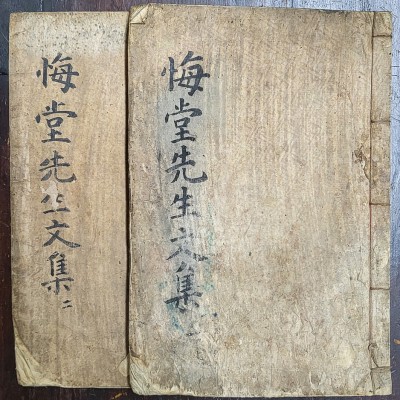 悔堂先生文集
悔堂先生文集 二